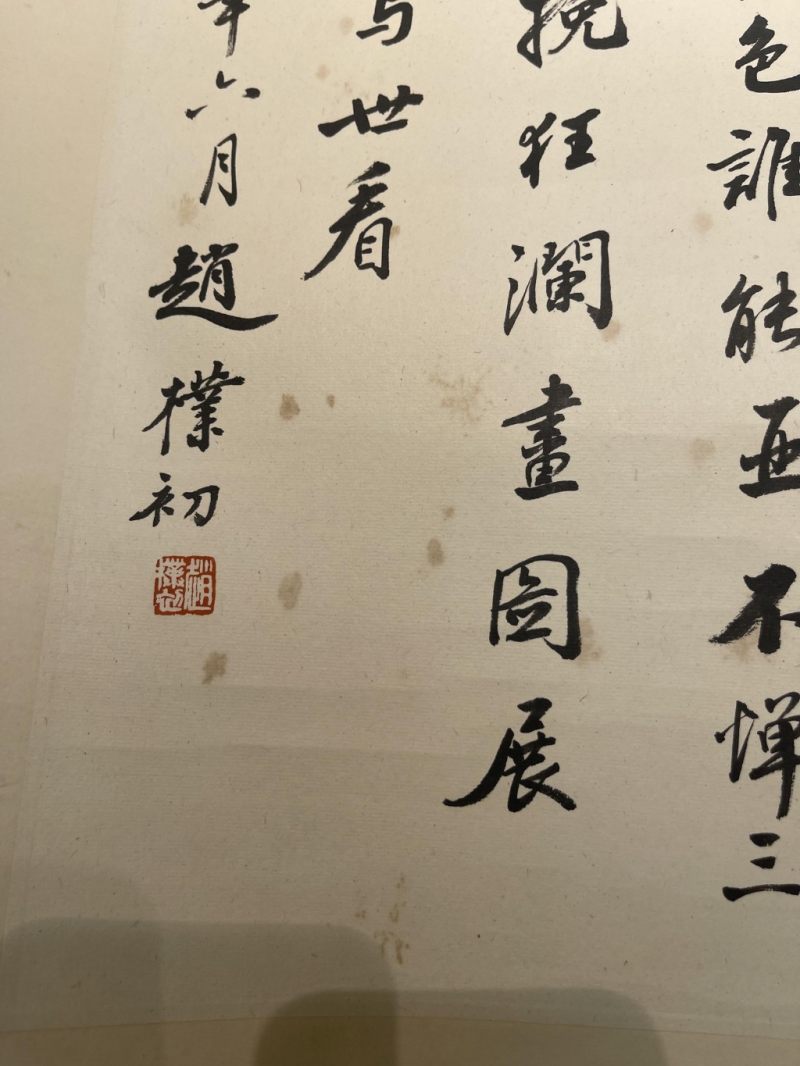 色誰能亞不惮三
挽狂瀾畫圖展
与世看
年六月趙樸初
趙樸初